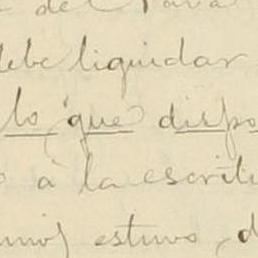 de del Pava
debe liquidar
lo que dispo
à la escritu
estuvo, d